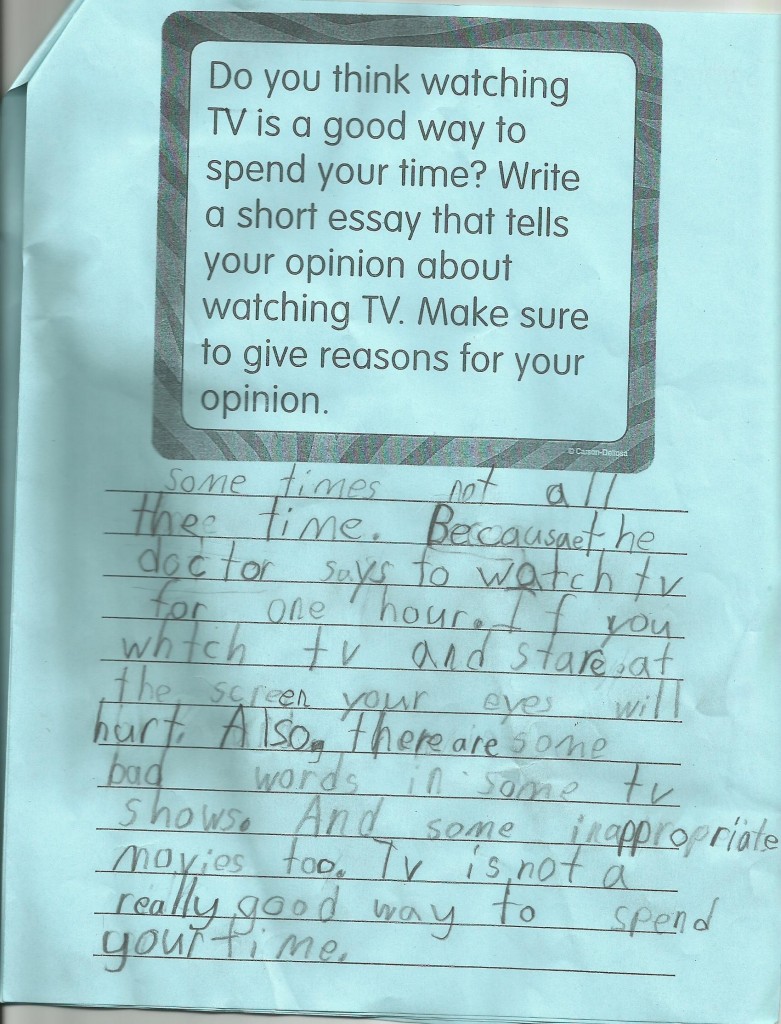 Do you think watching
TV is a good way to
spend your time? Write
a short essay that tells
your opinion about
watching TV. Make sure
to give reasons for your
opinion.
© Carson-Dellosa
some times not all
thee time. Becausaethe
doctor says to watch tv
for one hour. If you
whtch tv and stare at
the screen your eyes will
hurt. Also, there are some
bad words in some tv
shows. And some inappropriate
movies too. Tv is not a
really good way to spend
your time.